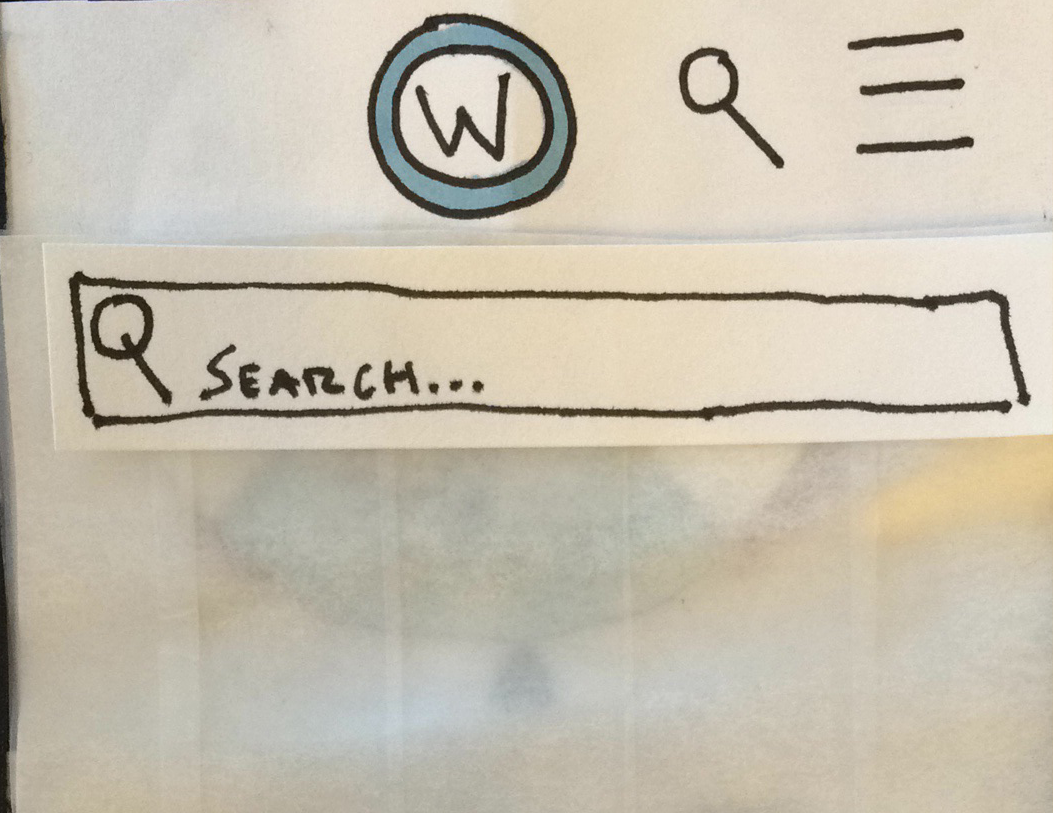 W
SEARCH...